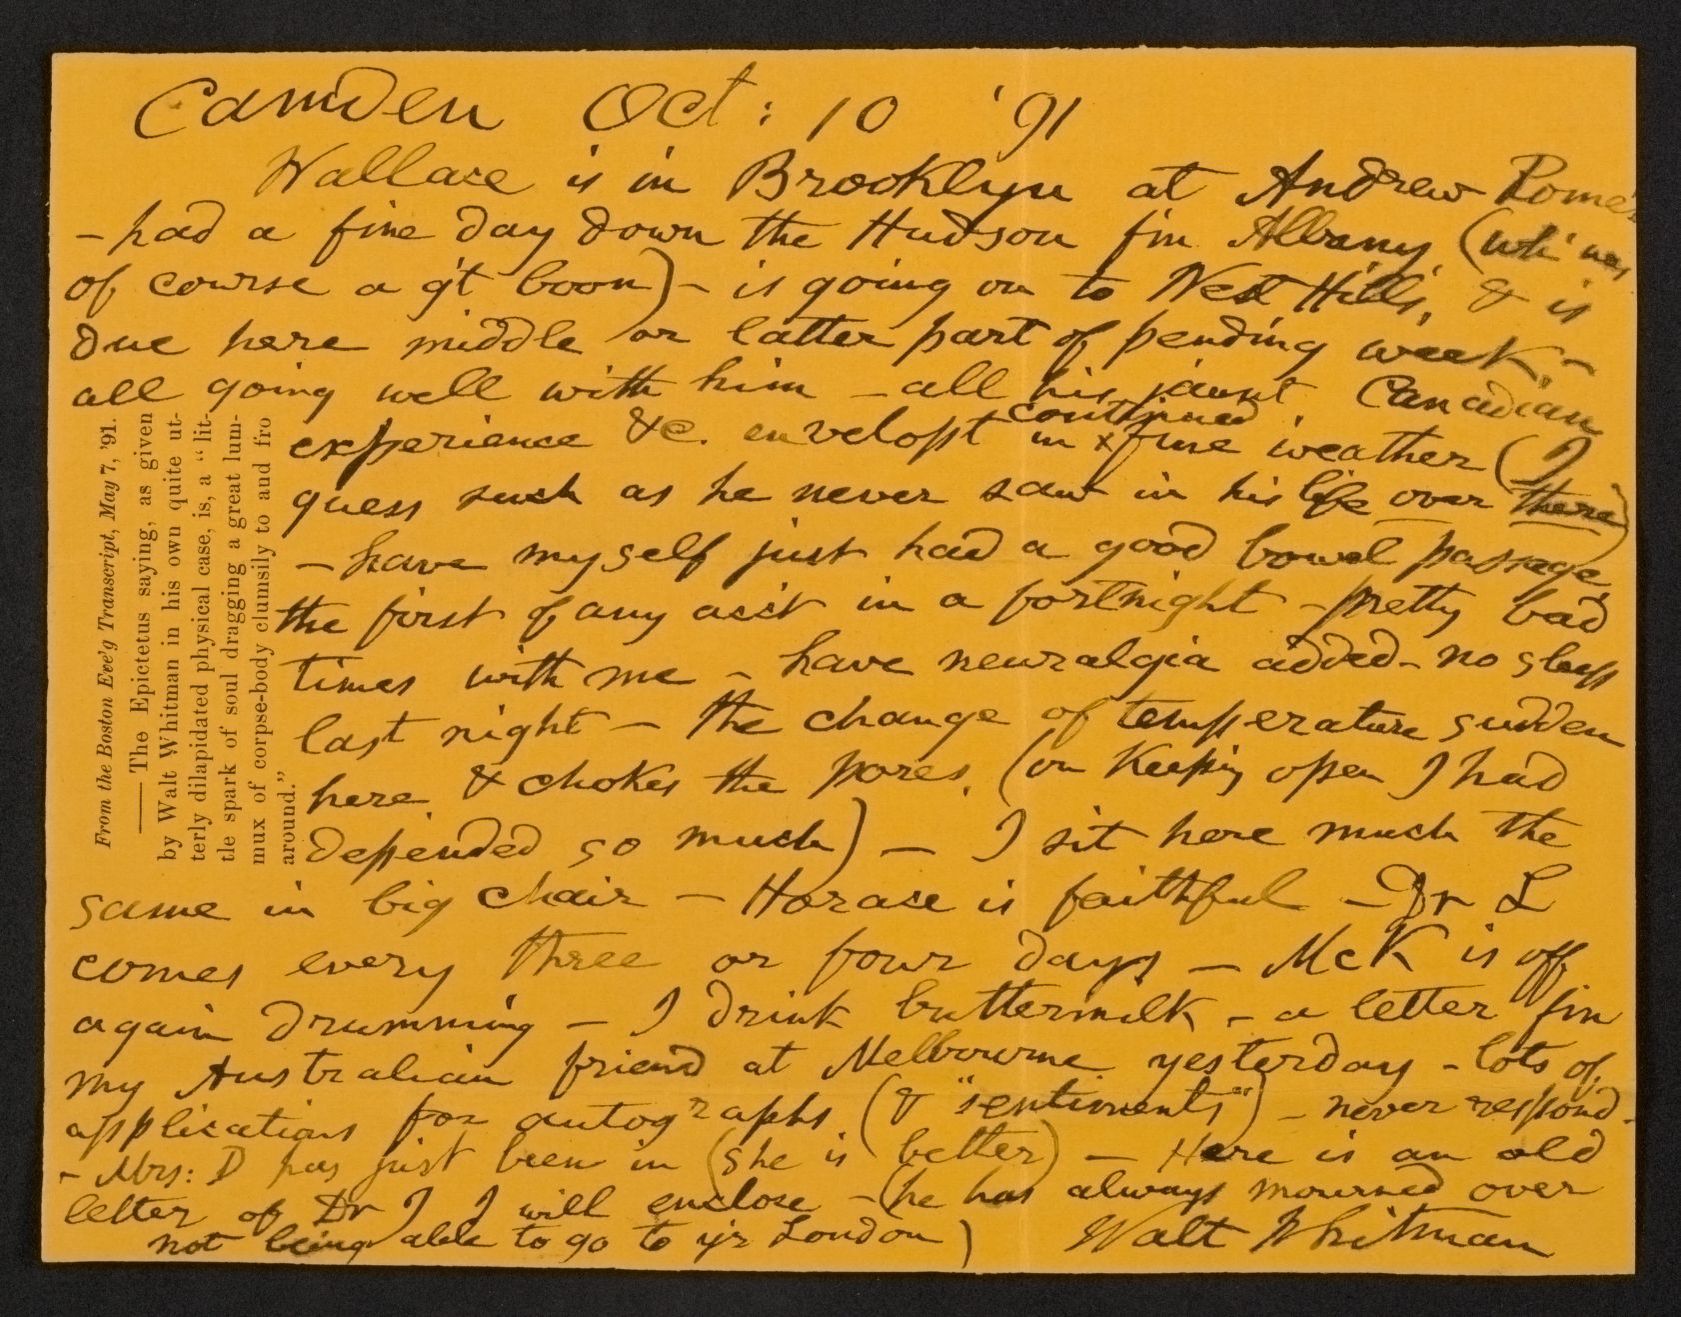 Camden Oct: 10 '91
Wallace is in Brooklyn at Andrew Rome's
- had a fine day down the Hudson f'm Albany (wh' was
of course a g't boon) - is going on to West Hills, & is
due here middle or latter part of pending week -
all going well with him - all his jaunt Canadian
experience &c. envelopt in continued fine weather (I
guess such as he never saw in his life over there)
- have myself just had a good bowel passage,
the first of any acc't in a fortnight - pretty bad
times with me - have neuralgia added - no sleep
last night - the change of temperature sudden
here & chokes the pores, (on keeping open I had
depended so much) - I sit here much the
same in big chair - Horace is faithful - Dr L
comes every three or four days - McK is off
again drumming - I drink buttermilk - a letter f'm
my Australian friend at Melbourne yesterday - lots of
applications for autographs (& "sentiments") - never respond -
- Mrs: D has just been in (she is better) - Here is an old
letter of Dr J I will enclose - (he has always mourned over
not being able to go to y'r London) Walt Whitman
From the Boston Eve'g Transcript, May 7, '91.
—— The Epictetus saying, as given
by Walt Whitman in his own quite ut-
terly dilapidated physical case, is, a "lit-
tle spark of soul dragging a great lum-
mux of corpse-body clumsily to and fro
around."